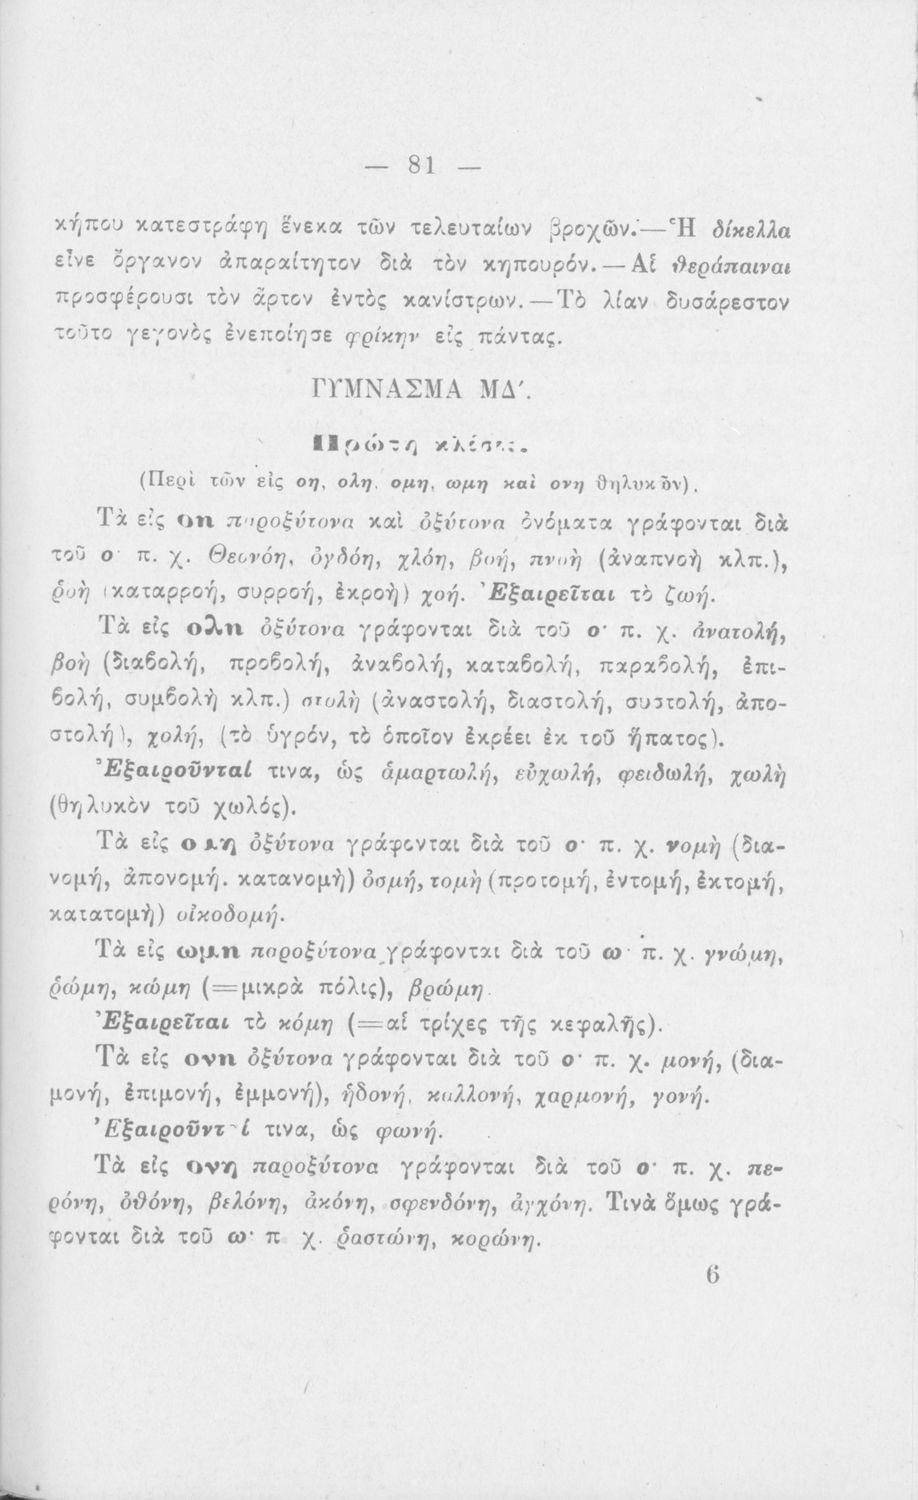 — 81 —
κήπου κατεστράφη ἕνεκα τῶν τελευταίων βροχῶν.—Ἡ δίκελλα
εἶνε ὄργανον ἀπαραίτητον διὰ τὸν κηπουρόν.—Αἱ θεράπαιναι
προσφέρουσι τὸν ἄρτον ἐντὸς κανίστρων.—Τὸ λίαν δυσάρεστον
τοῦτο γεγονὸς ἐνεποίησε φρίκην εἰς πάντας.
ΓΥΜΝΑΣΜΑ ΜΔ΄.
Πρώτη κλίσις.
(Περὶ τῶν εἰς οη, ολη, ομη, ωμη καὶ ονη θηλυκῶν).
Τὰ εἰς οη παροξύτονα καὶ ὀξύτονα ὀνόματα γράφονται διὰ
τοῦ ο· π. χ. Θεονόη, ὀγδόη, χλόη, βοή, πνοὴ (ἀναπνοὴ κλπ.),
ῥοὴ (καταρροή, συρροή, ἐκροὴ) χοή. Ἐξαιρεῖται τὸ ζωή.
Τὰ εἰς ολη ὀξύτονα γράφονται διὰ τοῦ ο· π. χ. ἀνατολή,
βοὴ (διαβολή, προβολή, ἀναβολή, καταβολή, παραβολή, ἐπι-
βολή, συμβολὴ κλπ.) στολὴ (ἀναστολή, διαστολή, συστολή, ἀπο-
στολή), χολή, (τὸ ὑγρόν, τὸ ὁποῖον ἐκρέει ἐκ τοῦ ἥπατος).
Ἐξαιροῦνταί τινα, ὡς ἁμαρτωλή, εὐχωλή, φειδωλή, χωλὴ
(θηλυκὸν τοῦ χωλός).
Τὰ εἰς ομη ὀξύτονα γράφονται διὰ τοῦ ο· π. χ. νομὴ (δια-
νομή, ἀπονομή. κατανομὴ) ὀσμή, τομὴ (προτομή, ἐντομή, ἐκτομή,
κατατομὴ) οἰκοδομή.
Τὰ εἰς ωμη παροξύτονα γράφονται διὰ τοῦ ω· π. χ. γνώμη,
ῥώμη, κώμη (=μικρὰ πόλις), βρώμη.
Ἐξαιρεῖται τὸ κόμη (=αἱ τρίχες τῆς κεφαλῆς).
Τὰ εἰς ονη ὀξύτονα γράφονται διὰ τοῦ ο· π. χ. μονή, (δια-
μονή, ἐπιμονή, ἐμμονή), ἡδονή, καλλονή, χαρμονή, γονή.
Ἐξαιροῦνταί τινα, ὡς φωνή.
Τὰ εἰς ονη παροξύτονα γράφονται διὰ τοῦ ο· π. χ. πε-
ρόνη, ὀθόνη, βελόνη, ἀκόνη, σφενδόνη, ἀγχόνη. Τινὰ ὅμως γρά-
φονται διὰ τοῦ ω· π χ. ῥαστώνη, κορώνη.
6